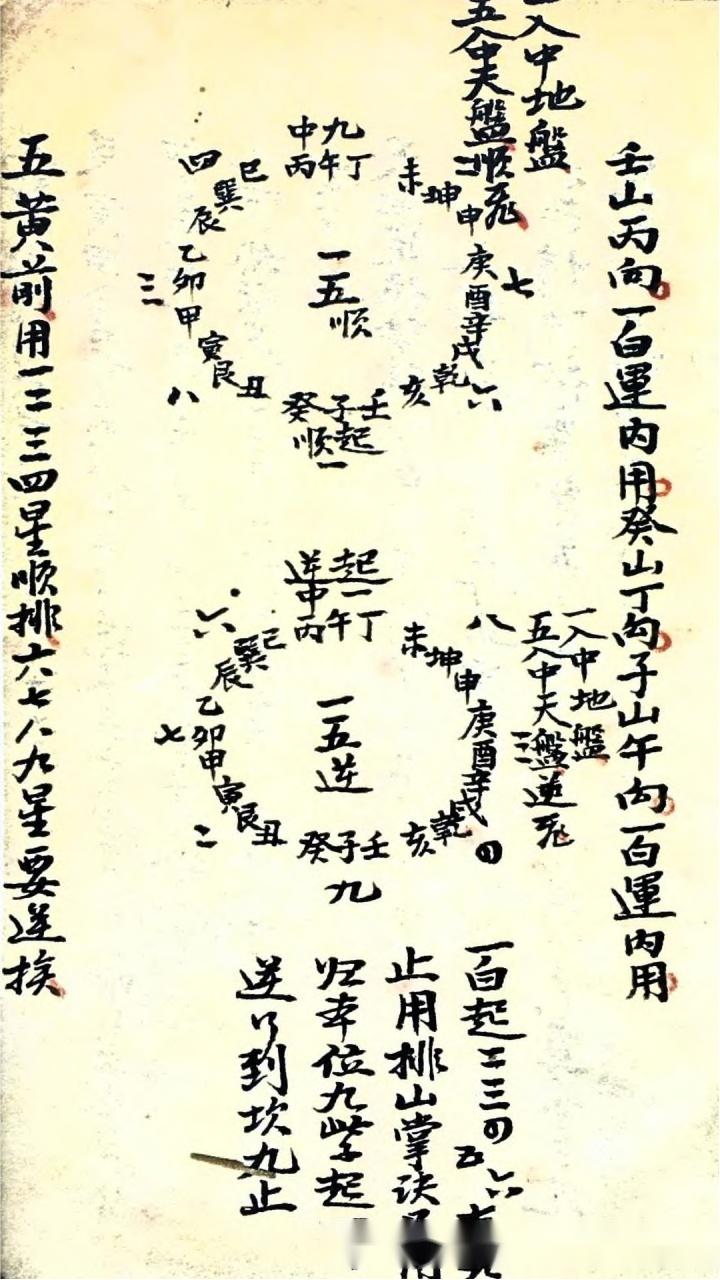 壬山丙向一白運內用癸山丁向子山午向一白運內用
一入中地盤
五入中天盤順飛
九
中
丙午丁
未坤申
二
庚酉辛
七
戌乾亥
六
壬子癸
起
順
一
丑艮寅
八
甲卯乙
三
辰巽巳
四
一五順
一入中地盤
五入中天盤逆飛
起一
逆中
丙午丁
未坤申
八
庚酉辛
三
戌乾亥
四
壬子癸
九
丑艮寅
二
甲卯乙
七
辰巽巳
六
一五逆
一白起二三四五六
止用排山掌诀
归本位九紫起
逆行到坎九止
五黄前用一二三四星順排六七八九星要逆挨